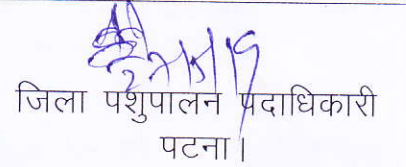 जिला पशुपालन पदाधिकारी
पटना।